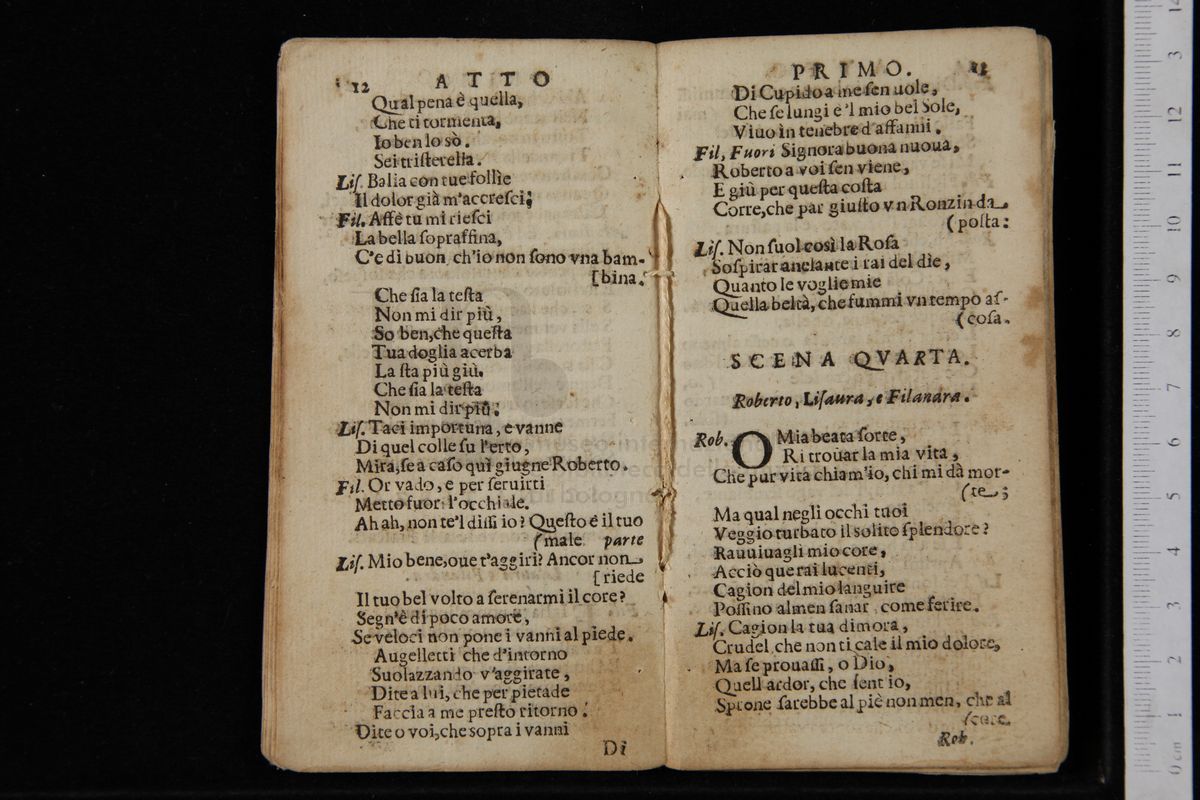 12 ATTO
Qual pena è quella,
Che ti tormenta,
Io ben lo sò.
Sei tristerella.
Lis. Balia con tue follie
Il dolor già m'accresci;
Fil. Affè tu mi riesci
La bella sopraffina,
C'e di buon, ch'io non sono vna bam-
[bina.
Che sia la testa
Non mi dir più,
So ben, che questa
Tua doglia acerba
La sta più giù.
Che sia la testa
Non mi dir più;
Lis. Taci importuna, e vanne
Di quel colle su l'erto,
Mira, se a caso quì giugne Roberto.
Fil. Or vado, e per seruirti
Metto fuori l'occhiale.
Ah ah, non te'l dissi io? Questo é il tuo
(male. parte
Lis. Mio bene, oue t'aggiri? Ancor non
[riede
Il tuo bel volto a serenarmi il core?
Segn'è di poco amore,
Se veloci non pone i vanni al piede.
Augelletti che d'intorno
Suolazzando v'aggirate,
Dite a lui, che per pietade
Faccia a me presto ritorno.
Dite o voi, che sopra i vanni
Di
PRIMO. 13
Di Cupido a me sen uole,
Che se lungi e'l mio bel Sole,
Viuo in tenebre d'affanni.
Fil, Fuori Signora buona nuoua,
Roberto a voi sen viene,
E giù per questa costa
Corre, che par giusto vn Ronzin da
(posta:
Lis. Non suol così la Rosa
Sospirar anelante i rai del die,
Quanto le voglie mie
Quella beltà, che fummi vn tempo as-
(cosa.
SCENA QVARTA.
Roberto, Lisaura, e Filandra.
Rob. O Mia beata sorte,
Ri trouar la mia vita,
Che pur vita chiam'io, chi mi dà mor-
(te;
Ma qual negli occhi tuoi
Veggio turbato il solito splendore?
Rauuiuagli mio core,
Acciò que rai lucenti,
Cagion del mio languire
Possino almen sanar, come ferire.
Lis. Cagion la tua dimora,
Crudel, che non ti cale il mio dolore,
Ma se prouassi, o Dio,
Quell ardor, che sent io,
Sprone sarebbe al piè non men, che al
(core.
Rob.